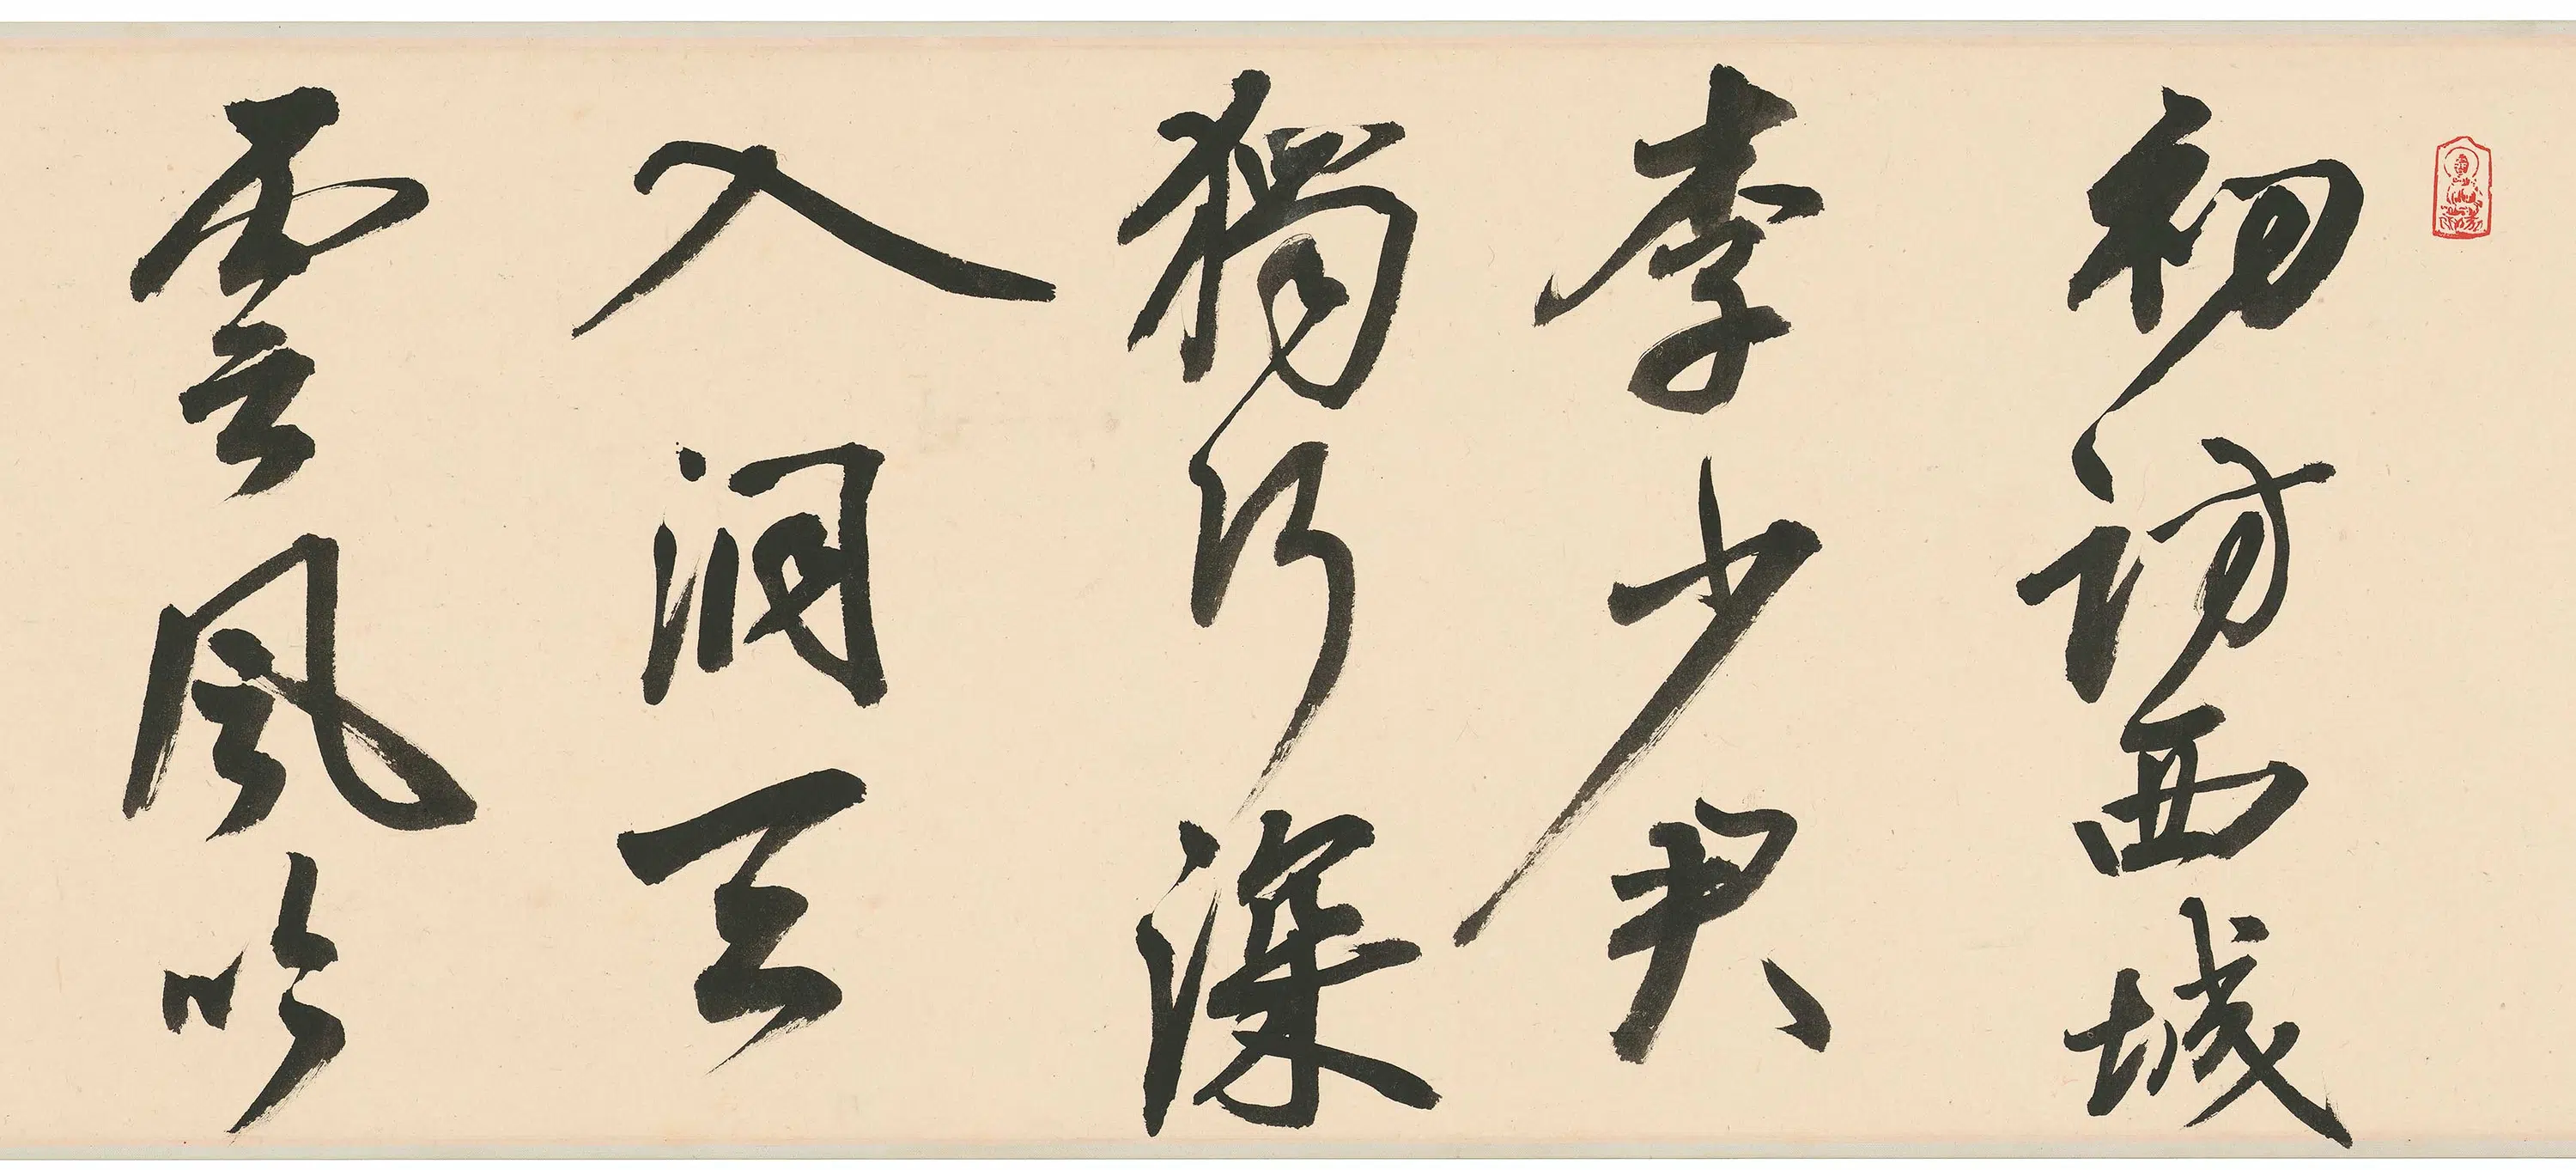 初訪西城
李少君
獨行深
入洞天
雲風吟